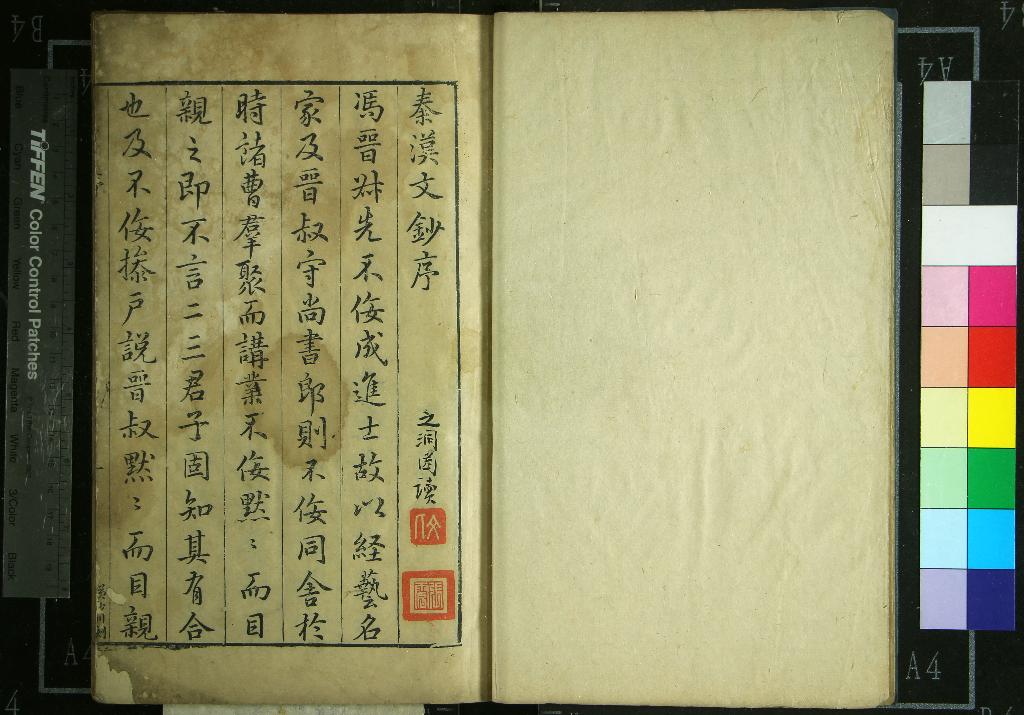 秦漢文鈔序
之洞圈讀
馮晉叔先不佞成進士故以経藝名
家及晉叔守尚書郎則不佞同舍於
時諸曹羣聚而講業不佞默〻而目
親之即不言二三君子固知其有合
也及不佞操戶說晉叔默〻而目親
TIFFEN Color Control Patches
Blue Cyan Green Yellow Red Magenta White 3/Color Black
B4
A4
A4
A4
A4